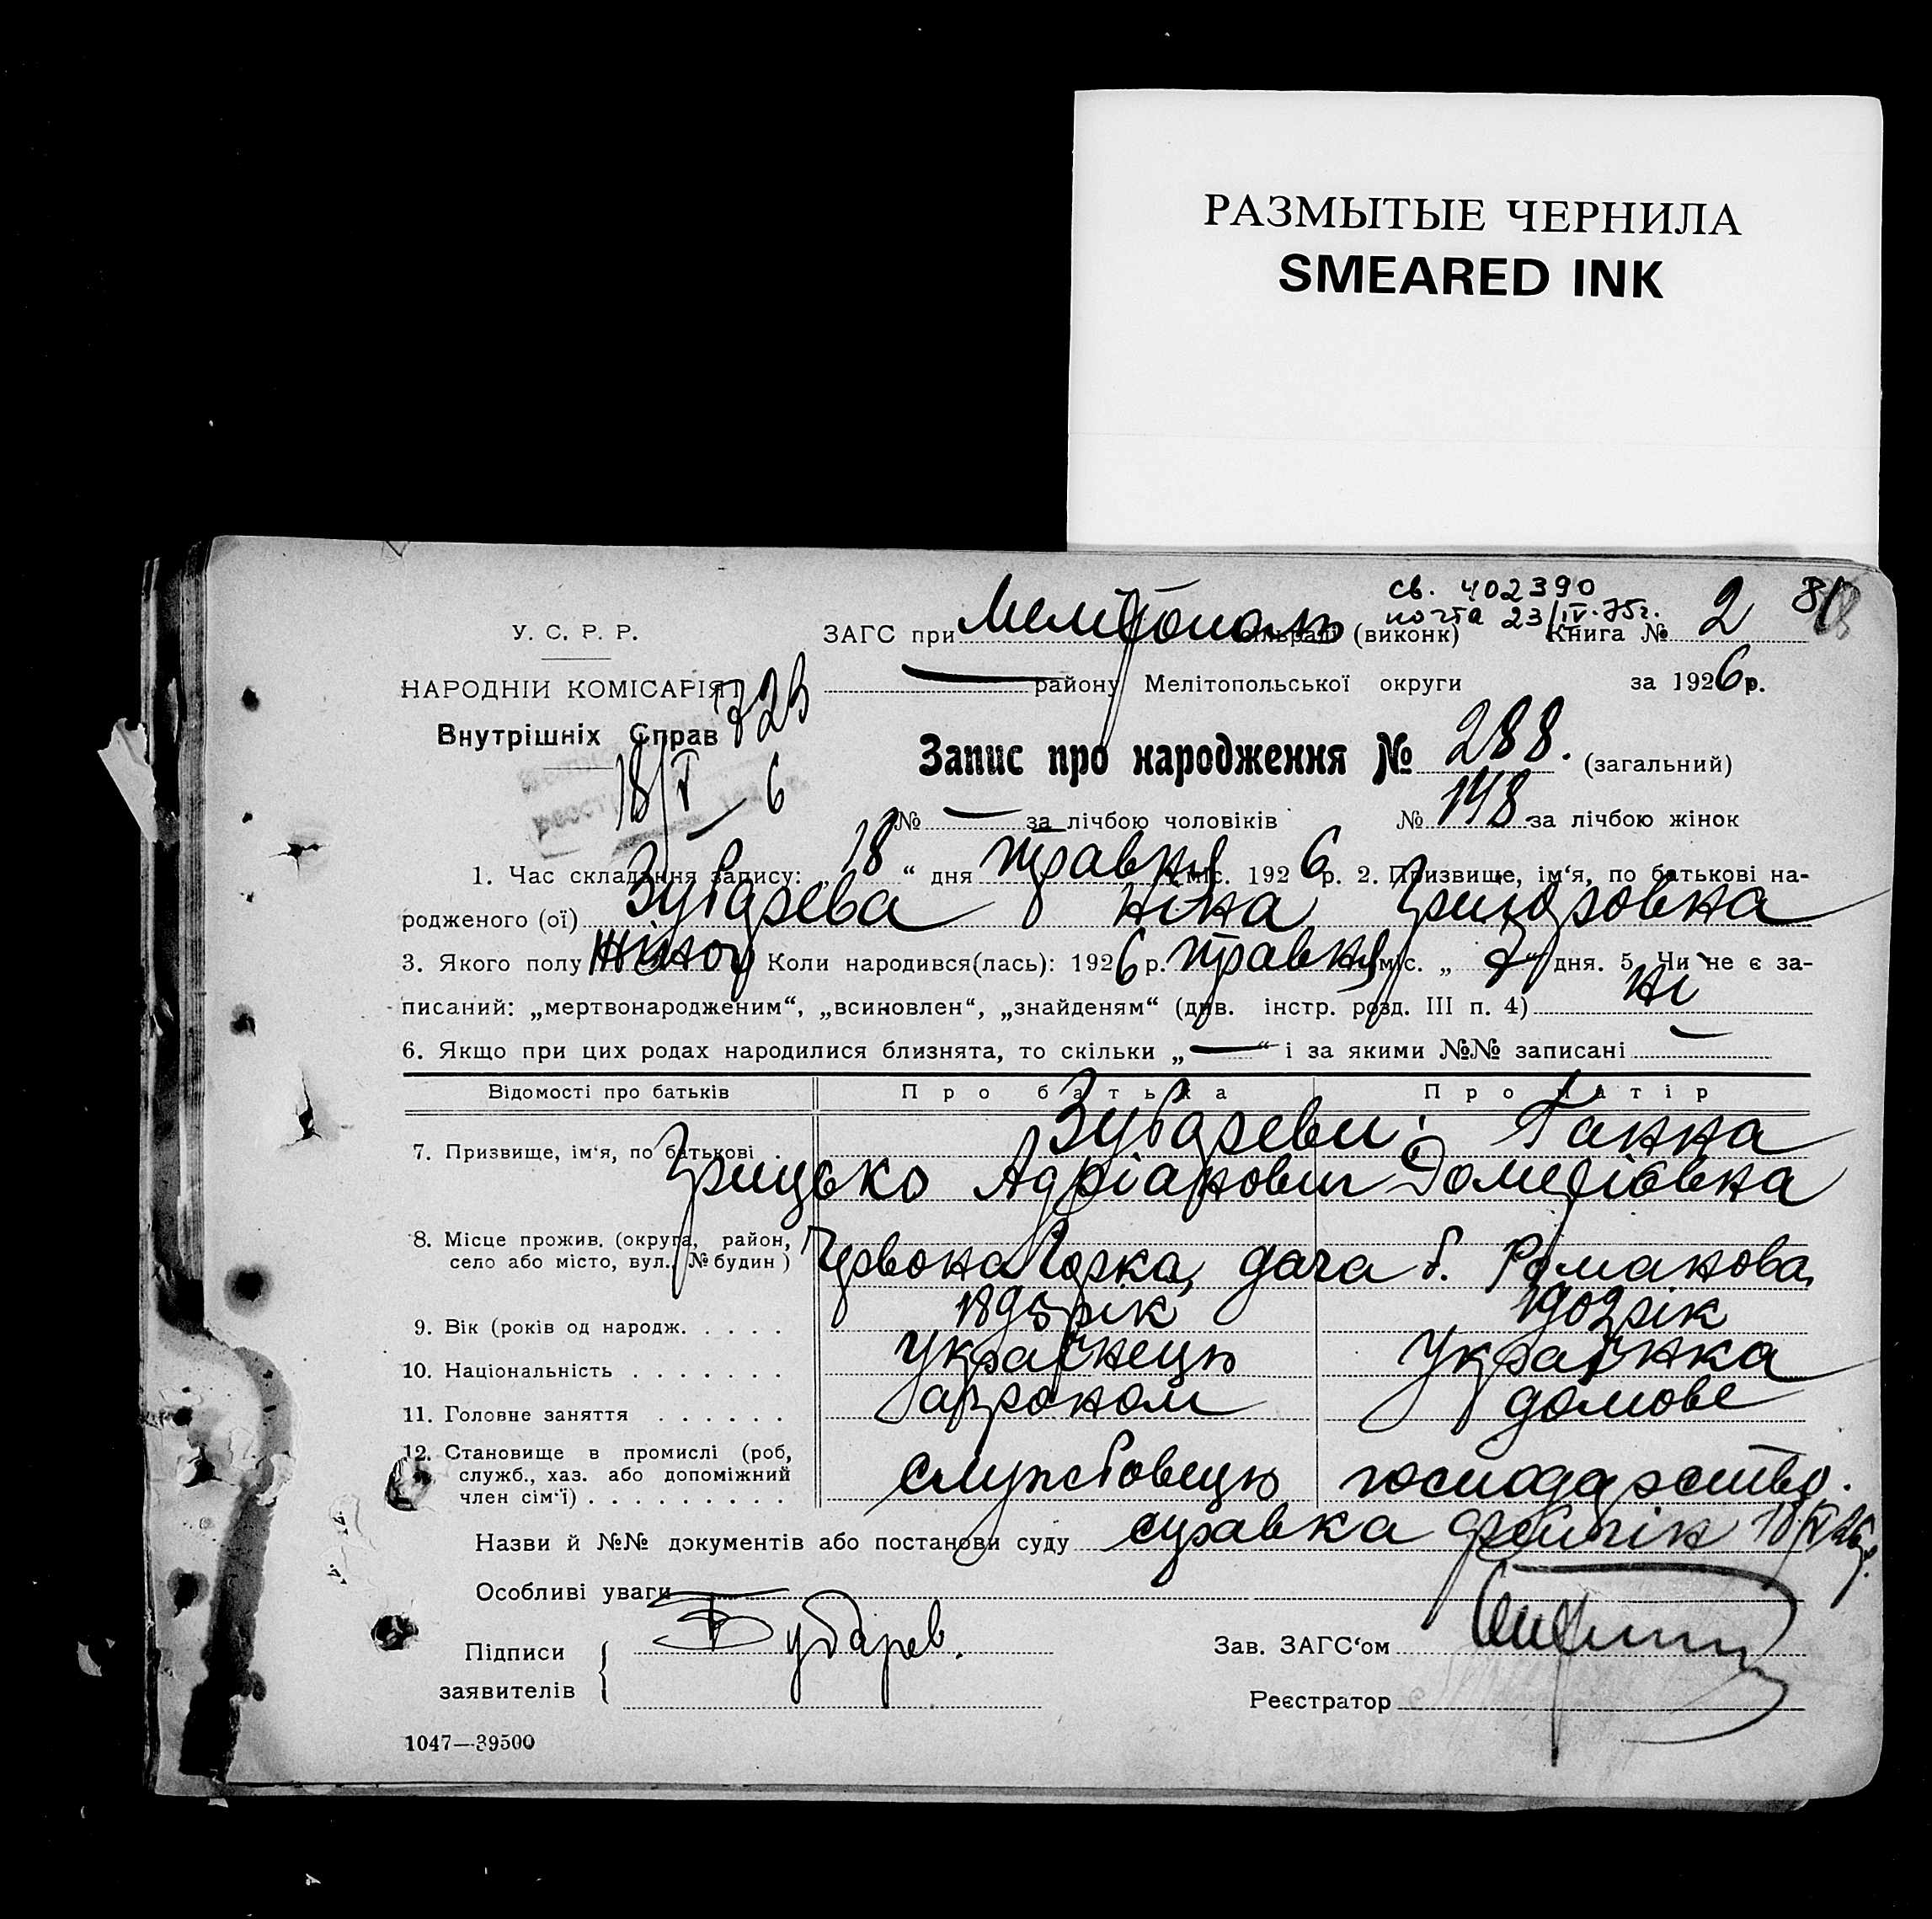 РАЗМЫТЫЕ ЧЕРНИЛА
SMEARED INK
св. 402390
почта 23/IV-75г.
У. С. Р. Р.
ЗАГС при Мелітополь сільраді (виконк) Книга № 2
НАРОДНІЙ КОМІСАРІЯТ
району Мелітопольської округи за 1926 р.
723
Внутрішніх Справ
18/V 6
Запис про народження № 288. (загальний)
№ — за лічбою чоловіків № 148 за лічбою жінок
1. Час складання запису: „18“ дня травня міс. 1926 р. 2. Призвище, ім‘я, по батькові на-
родженого (ої) Зубарева Ніна Григоровна
3. Якого полу жіноч Коли народився(лась): 1926 р. травня міс. „7“ дня. 5. Чи не є за-
писаний: „мертвонародженим“, „всиновлен“, „знайденям“ (див. інстр. розд. III п. 4) ні
6. Якщо при цих родах народилися близнята, то скільки „—“ і за якими №№ записані —
Відомості про батьків Про батька Про матір
7. Призвище, ім‘я, по батькові . Зубареви: Ганна
Грицько Адріанович
8. Місце прожив. (округа, район,
село або місто, вул., № будин) Червона Горка, дача б. Романова,
9. Вік (років од народж. . . . . 1895 рік 1902 рік
10. Національність . . . . . . . Українець Українка
11. Головне заняття . . . . . . агроном домове
12. Становище в промислі (роб,
служб., хаз. або допоміжний
член сім‘ї) . . . . . . . . . службовець господарство.
Назви й №№ документів або постанови суду справка
Особливі уваги
Підписи
заявителів
Зубарев.
Зав. ЗАГС‘ом
Реєстратор
1047—39500